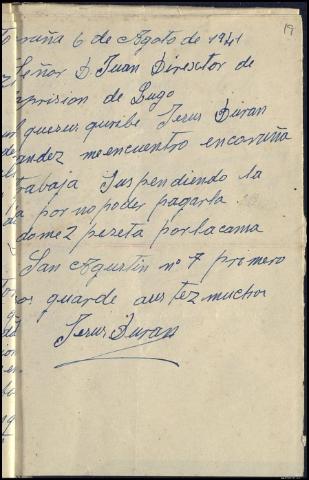 19
ruña 6 de Agoto de 1941
Señor D. Juan Director de
prision de Lugo
quesus quribe Jesus Duran
andez me encuentro en coruña
trabaja Suspendiendo la
por no poder pagarla
dome 2 peseta por la cama
San Agustin nº 7 promero
guarde aus tez muchos
Jesus Duran